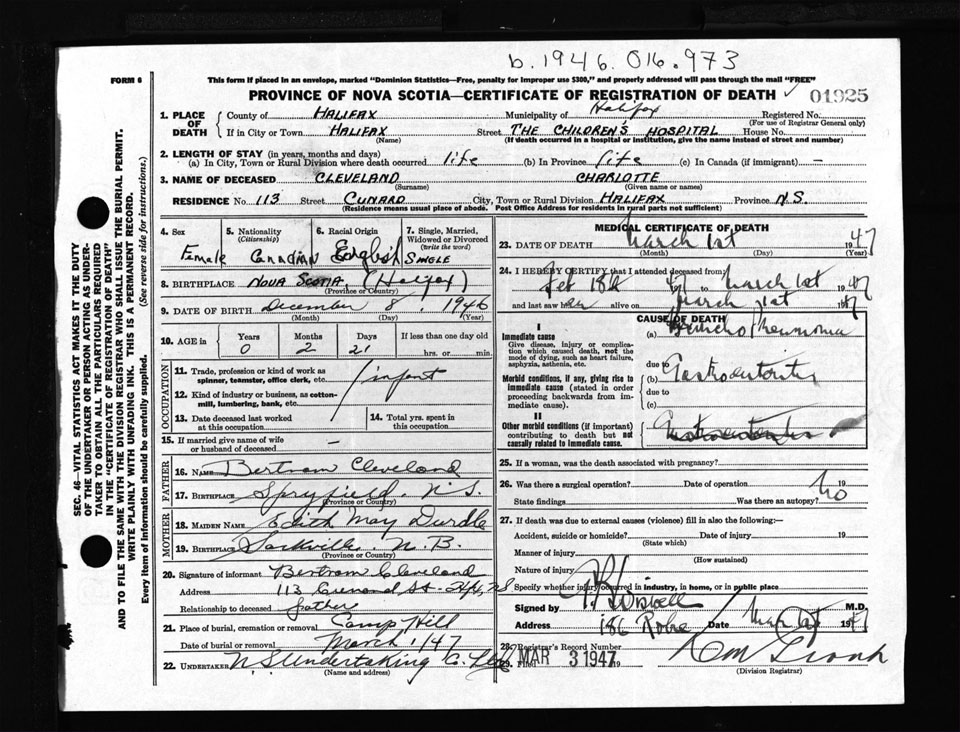 b.1946.016.973
FORM 6
This form if placed in an envelope, marked "Dominion Statistics—Free, penalty for improper use $300," and properly addressed will pass through the mail "FREE"
PROVINCE OF NOVA SCOTIA—CERTIFICATE OF REGISTRATION OF DEATH
01925
1. PLACE OF DEATH
County of HALIFAX Municipality of Halifax Registered No.
(For use of Registrar General only)
If in City or Town HALIFAX Street THE CHILDREN'S HOSPITAL House No.
(Name) (If death occurred in a hospital or institution, give the name instead of street and number)
2. LENGTH OF STAY (in years, months and days)
(a) In City, Town or Rural Division where death occurred life (b) In Province life (c) In Canada (if immigrant) —
3. NAME OF DECEASED CLEVELAND CHARLOTTE
(Surname) (Given name or names)
RESIDENCE No. 113 Street CUNARD City, Town or Rural Division HALIFAX Province N.S.
(Residence means usual place of abode. Post Office Address for residents in rural parts not sufficient)
4. Sex
Female
5. Nationality
(Citizenship)
Canadian
6. Racial Origin
English
7. Single, Married, Widowed or Divorced
(Write the word)
SINGLE
8. BIRTHPLACE NOVA SCOTIA (Halifax)
(Province or Country)
9. DATE OF BIRTH December 8, 1946
(Month) (Day) (Year)
10. AGE in
Years Months Days If less than one day
0 2 21 hrs. or min.
OCCUPATION
11. Trade, profession or kind of work as spinner, teamster, office clerk, etc.
infant
12. Kind of industry or business, as cotton-mill, lumbering, bank, etc.
13. Date deceased last worked at this occupation
14. Total yrs. spent in this occupation
15. If married give name of wife or husband of deceased —
FATHER
16. NAME Bertram Cleveland
17. BIRTHPLACE Spryfield, N.S.
(Province or Country)
MOTHER
18. MAIDEN NAME Edith May Durdle
19. BIRTHPLACE Sackville, N.B.
(Province or Country)
20. Signature of informant Bertram Cleveland
Address 113 Cunard St.
Relationship to deceased father
21. Place of burial, cremation or removal Camp Hill
Date of burial or removal March 1/47
22. UNDERTAKER N S Undertaking Co. Ltd
(Name and address)
MEDICAL CERTIFICATE OF DEATH
23. DATE OF DEATH March 1st 1947
(Month) (Day) (Year)
24. I HEREBY CERTIFY that I attended deceased from:
Feb 18th 47 to March 1st 1947
and last saw her alive on March 1st 1947
CAUSE OF DEATH
I
Immediate cause
Give disease, injury or complication which caused death, not the mode of dying, such as heart failure, asphyxia, asthenia, etc.
(a) Broncho Pneumonia
due to
Morbid conditions, if any, giving rise to immediate cause (stated in order proceeding backwards from immediate cause).
(b) Gastroenteritis
due to
(c)
II
Other morbid conditions (if important) contributing to death but not causally related to immediate cause.
25. If a woman, was the death associated with pregnancy?
26. Was there a surgical operation? Date of operation 19
State findings Was there an autopsy? No
27. If death was due to external causes (violence) fill in also the following:—
Accident, suicide or homicide? Date of injury 19
(State which)
Manner of injury
(How sustained)
Nature of injury
Specify whether injury occurred in industry, in home, or in public place
Signed by M.D.
Address 186 Date March 1st 1947
28. Registrar's Record No.
29. Filed MAR 3 1947 19
(Division Registrar)
SEC. 46—VITAL STATISTICS ACT MAKES IT THE DUTY OF THE UNDERTAKER OR PERSON ACTING AS UNDERTAKER TO OBTAIN ALL THE PARTICULARS REQUIRED IN THE "CERTIFICATE OF REGISTRATION OF DEATH" AND TO FILE THE SAME WITH THE DIVISION REGISTRAR WHO SHALL ISSUE THE BURIAL PERMIT.
WRITE PLAINLY WITH UNFADING INK. THIS IS A PERMANENT RECORD.
Every item of information should be carefully supplied. (See reverse side for instructions.)